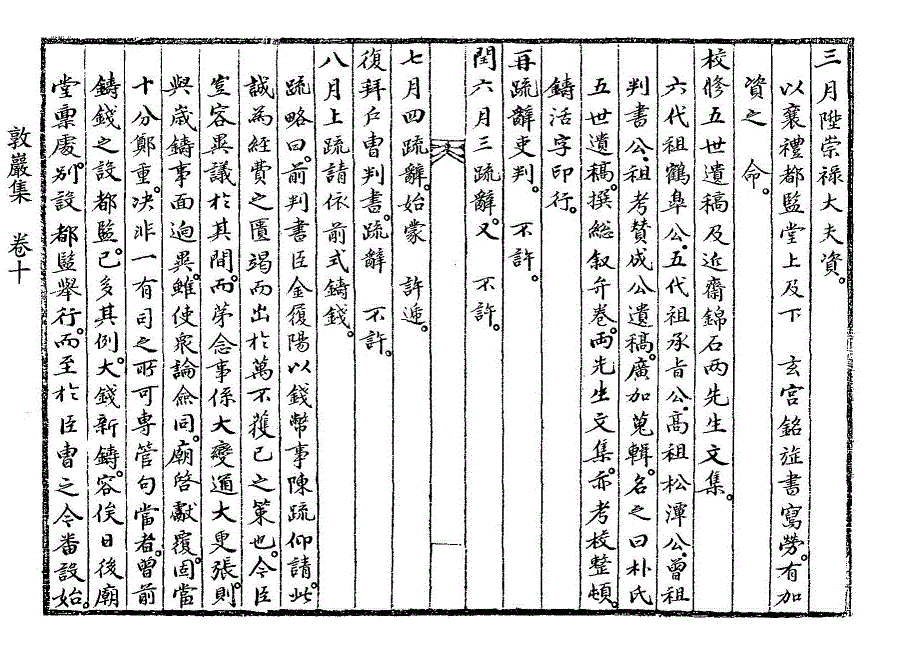 三月陞崇祿大夫資。
以襄禮都監堂上及下 玄宮銘旌書寫勞。有加
資之 命。
校修五世遺稿及近齋錦石两先生文集。
六代祖鶴臯公。五代祖承旨公。高祖松潭公。曾祖
判書公。祖考贊成公遺稿。廣加蒐輯。名之曰朴氏
五世遺稿。撰総叙弁卷。两先生文集。亦考校整頓。
鑄活字印行。
再疏辭吏判。不許。
閏六月三疏辭。又 不許。
七月四疏辭。始蒙 許遞。
復拜戶曹判書。疏辭 不許。
八月上疏請依前式鑄錢。
疏略曰。前判書臣金履陽以錢幣事陳疏仰請。此
誠為經費之匱竭而出於萬不獲已之策也。今臣
豈容異議於其間。而苐念事係大變通大更張。則
與歲鑄事面逈異。雖使衆論僉同。廟啓獻覆。固當
十分鄭重。决非一有司之所可專管句當者。曾前
鑄錢之設都監。已多其例。大錢新鑄。容俟日後廟
堂稟處。别設都監舉行。而至於臣曹之今番設始。
敦巖集 卷十